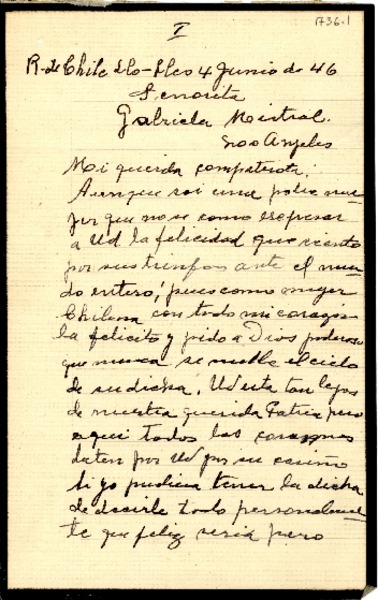 1736.1
I
R. de Chile Llo-Lleo 4 Junio de 46
Señorita
Gabriela Mistral.
Los Angeles
Mi querida compatriota:
Aunque soi una pobre mu-
jer que no se como espresar
a Ud la felicidad que siento
por sus trinfos ante el mun-
do entero; pues como mujer
Chilena con todo mi corazon
la felicito y pido a Dios poderoso
que nunca se nuble el cielo
de su dicha. Ud esta tan lejos
de nuestra querida Patria pero
aqui todos los corazones
laten por Ud por su cariño
si yo pudiera tener la dicha
de decirle todo personalmen-
te que feliz seria pero